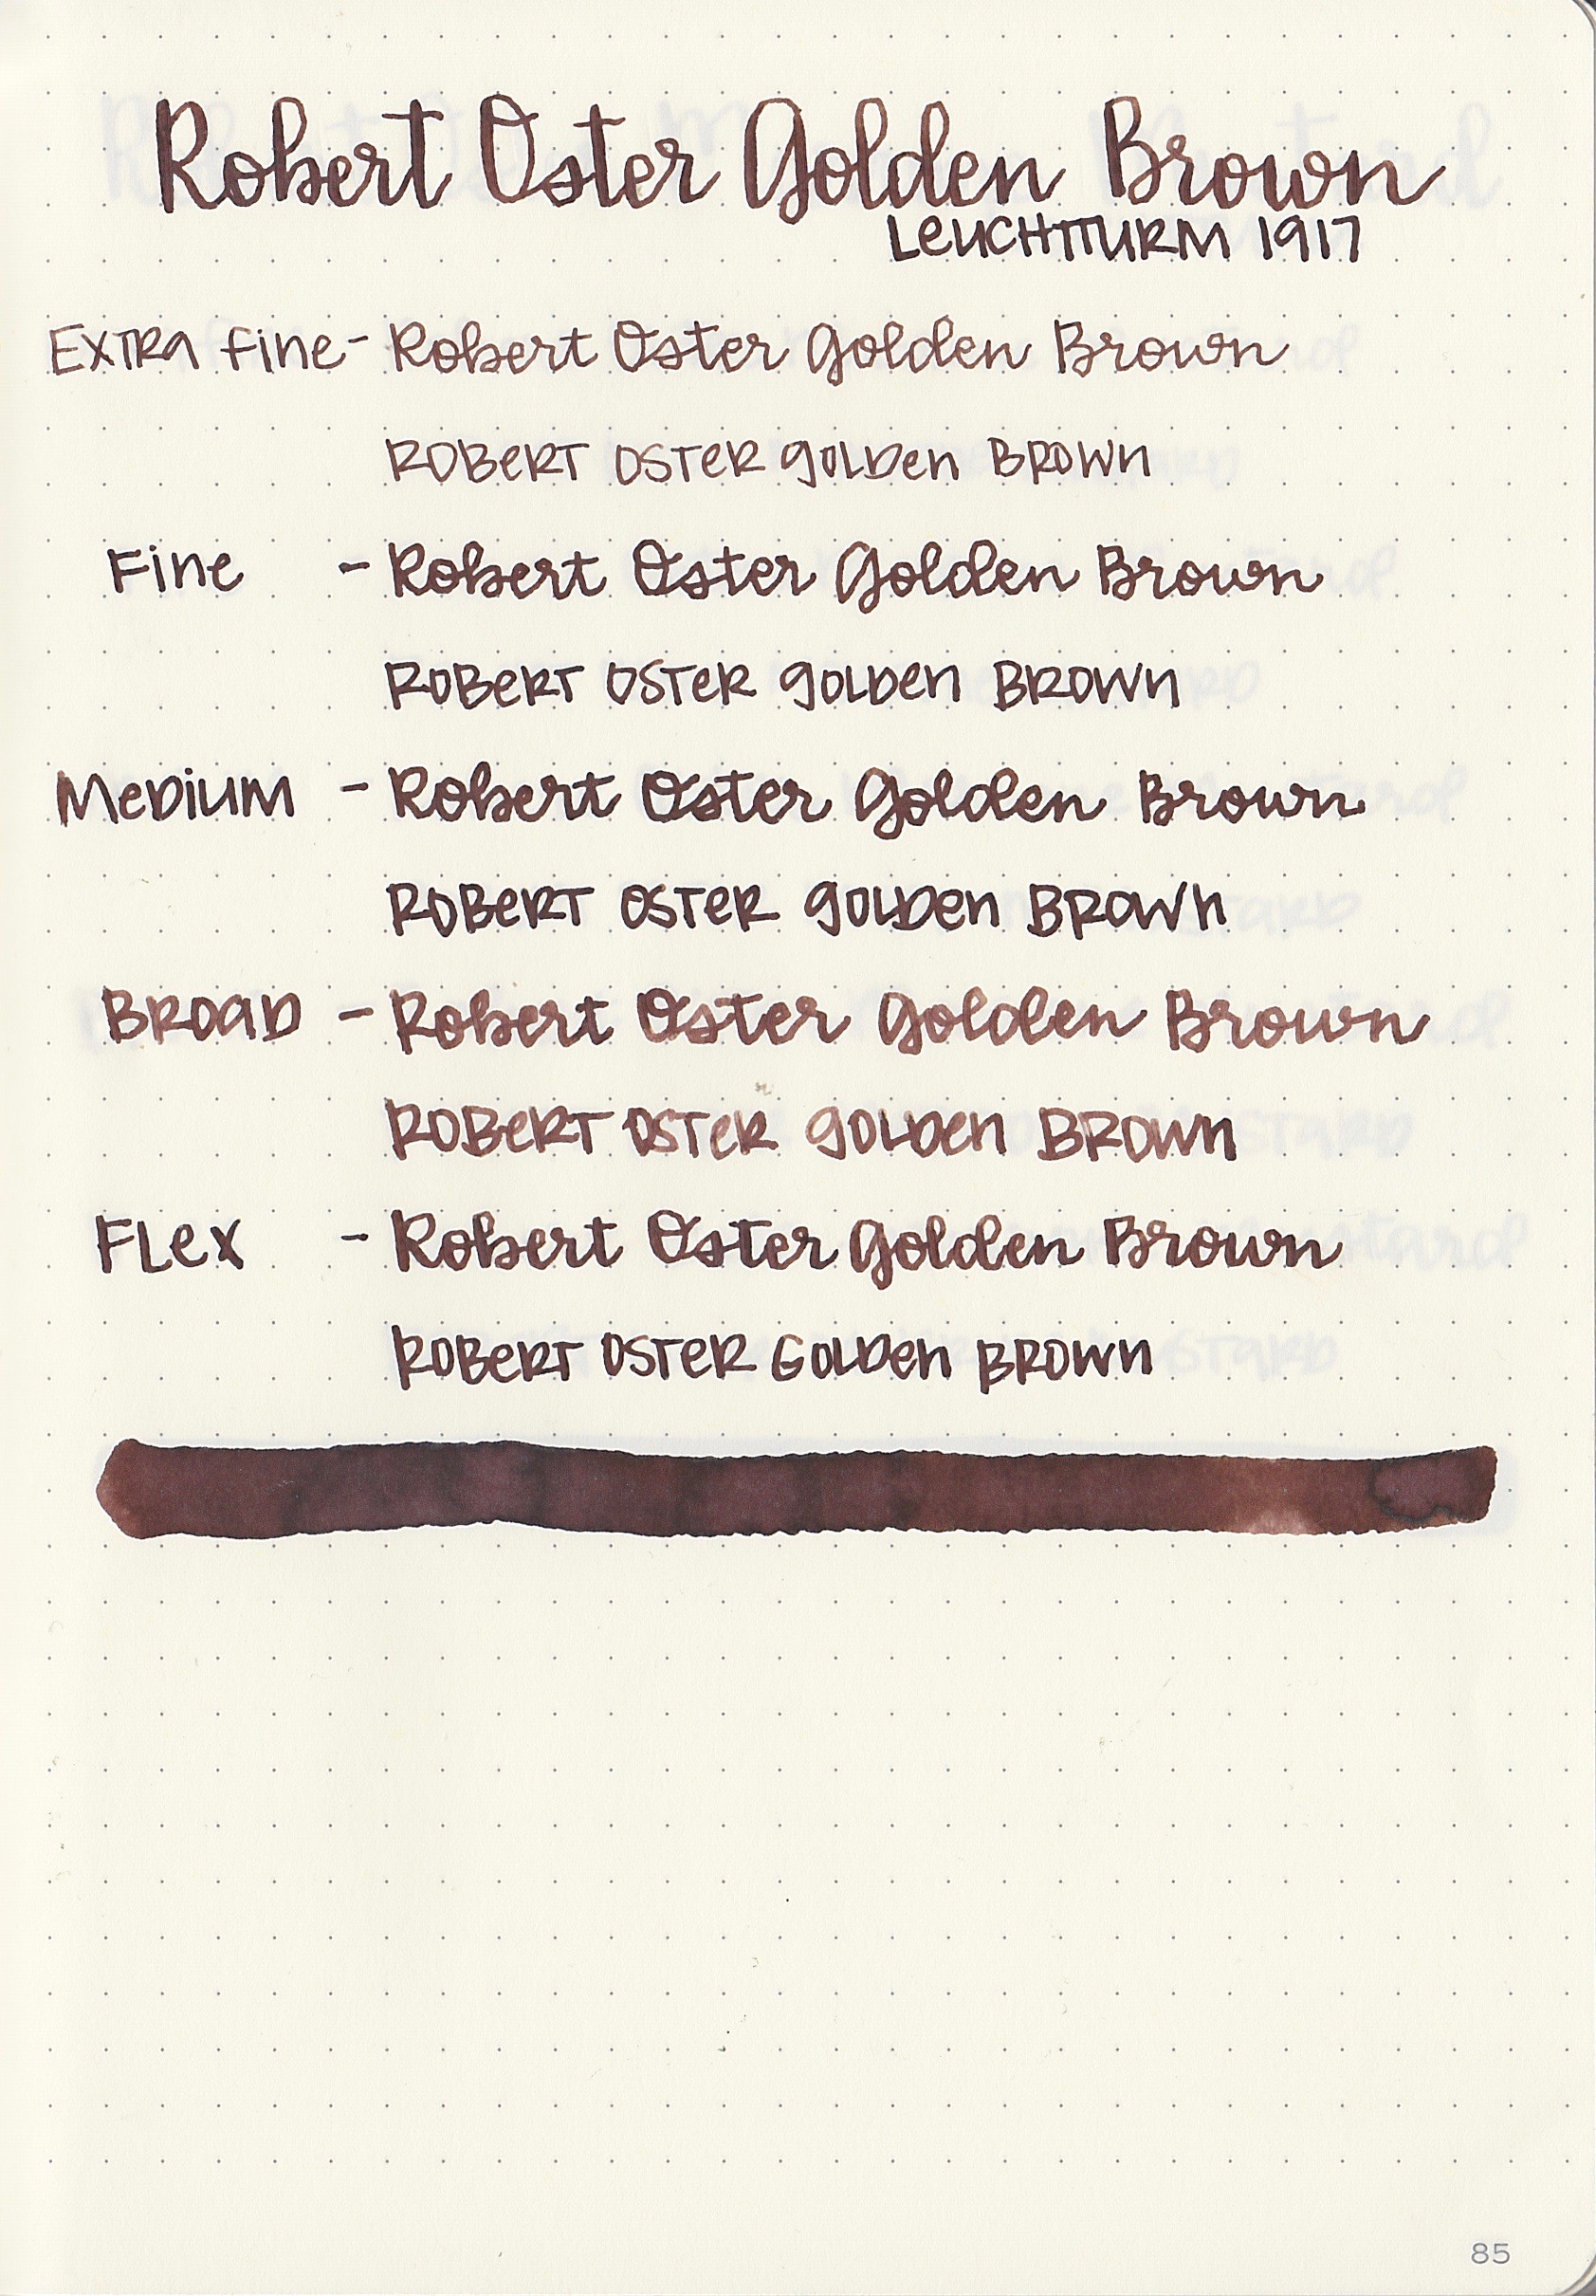 Robert Oster Golden Brown
LeUCHTTURM 1917
EXTRA fine - Robert Oster Golden Brown
ROBeRT OSTeR gOLDen BROWN
Fine - Robert Oster Golden Brown
ROBeRT OSTeR gOLDen BROWN
MeDiUM - Robert Oster Golden Brown
ROBeRT OSTeR gOLDen BROWN
BROaD - Robert Oster Golden Brown
ROBeRT OSTeR gOLDen BROWN
FLex - Robert Oster Golden Brown
ROBeRT OSTeR GOLDen BROWN
85